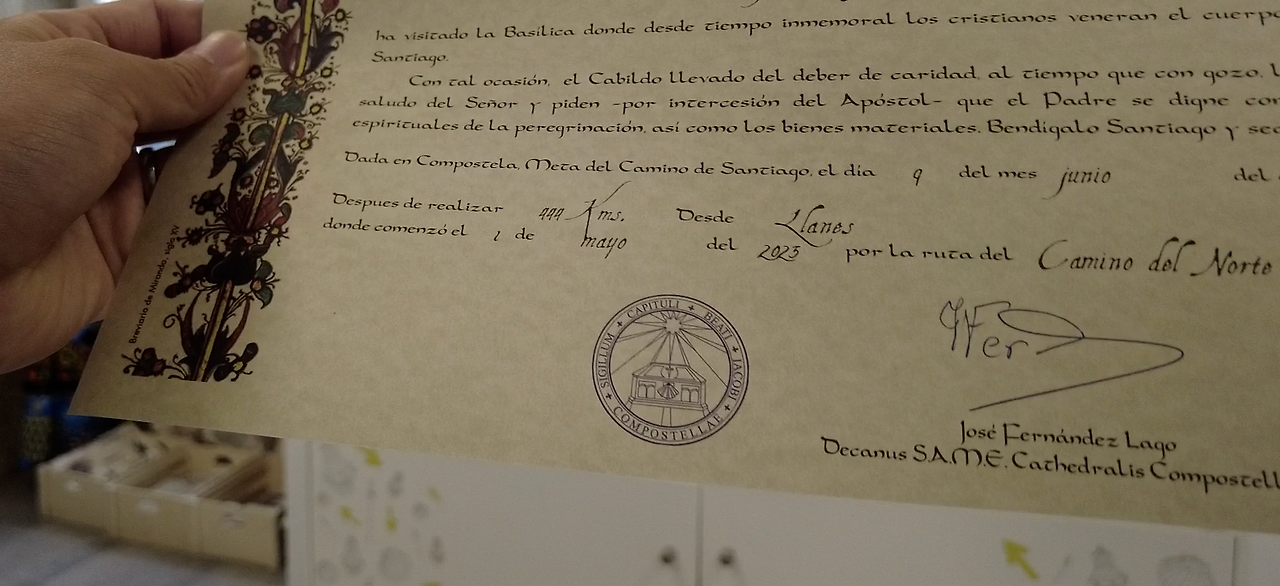 ha visitado la Basílica donde desde tiempo inmemoral los cristianos veneran el cuerpo
Santiago.
Con tal ocasión, el Cabildo llevado del deber de caridad, al tiempo que con gozo,
saludo del Señor y piden -por intercesión del Apóstol- que el Padre se digne con
espirituales de la peregrinación, así como los bienes materiales. Bendígalo Santiago y sea
Dada en Compostela, Meta del Camino de Santiago, el día 9 del mes junio del
Despues de realizar 444 Kms. Desde Llanes
donde comenzó el 1 de mayo del 2023 por la ruta del Camino del Norte
Breviario de Miranda. siglo XV
SIGILLUM + CAPITULI + BEATI + JACOBI + COMPOSTELLAE +
JFer
José Fernández Lago
Decanus S.A.M.E. Cathedralis Compostell